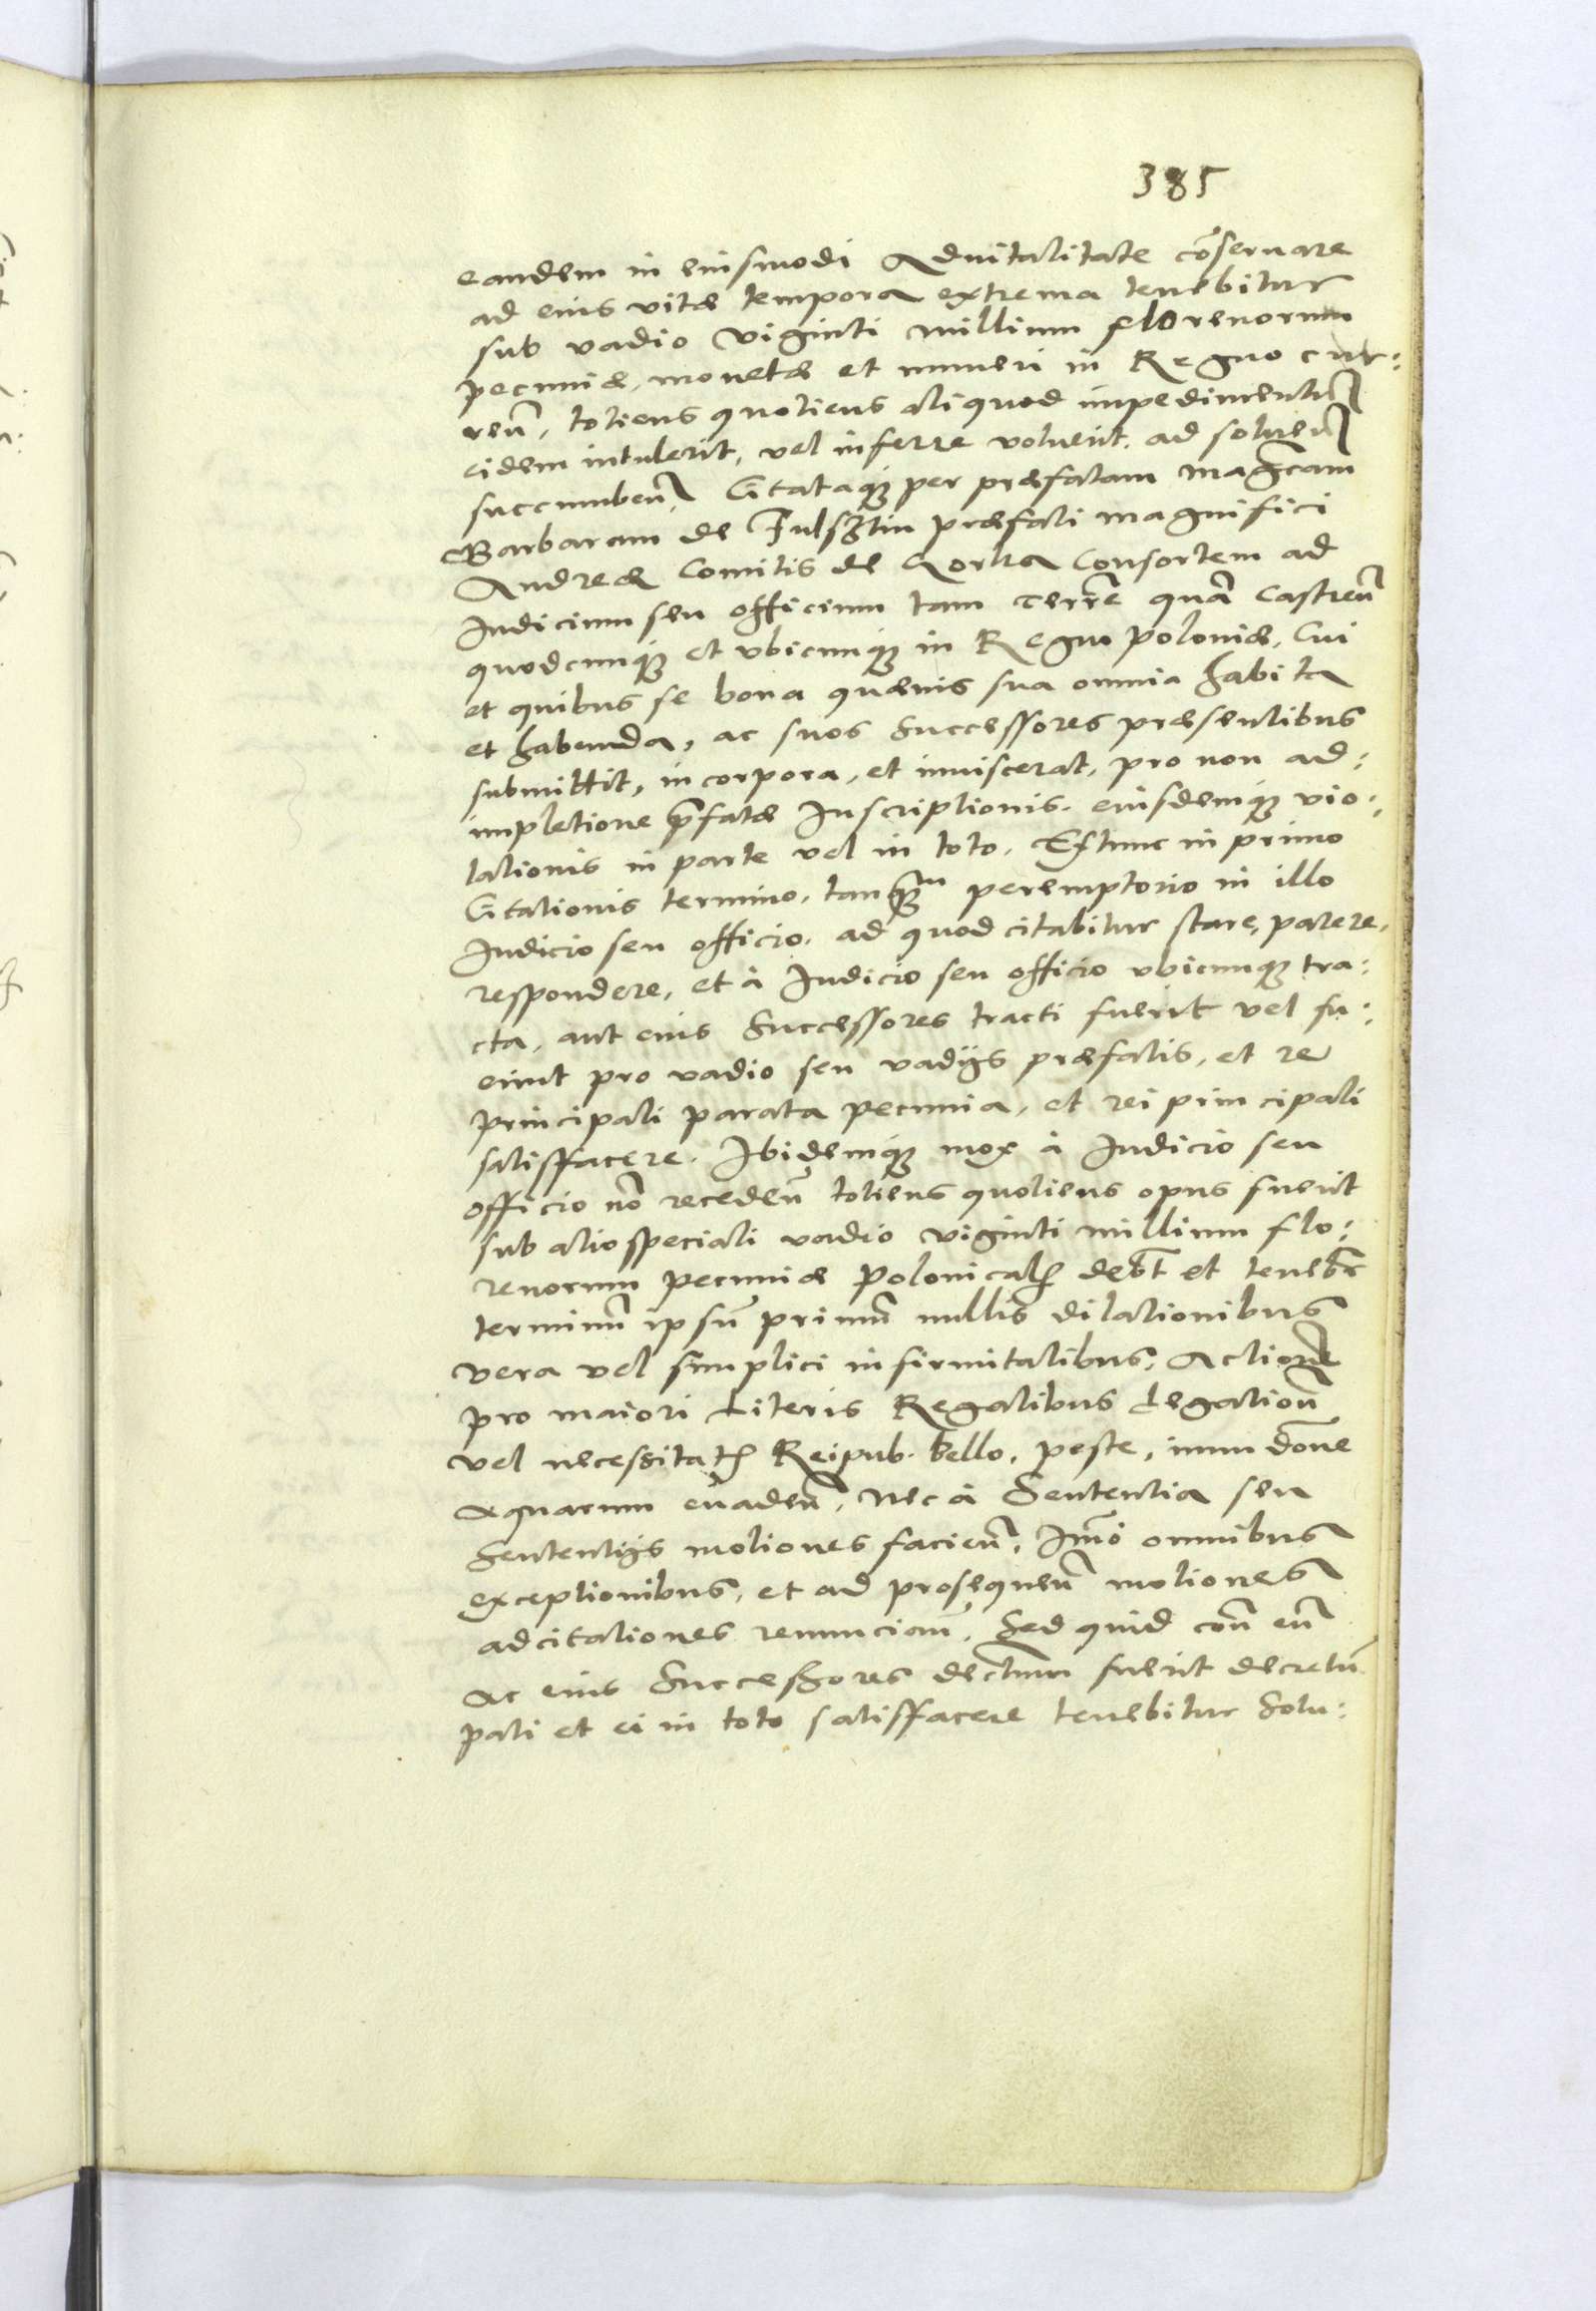 385
eandem in eiusmodi Aduitalitate cōseruare
ad eius vitæ tempora extrema tenebitur
sub vadio viginti millium florenorum
pecuniæ, monetæ et numeri in Regno cur:
reñ, totiens quotiens aliquod impedimentũ
eidem intulerit, vel inferre voluerit. ad solueñ
succumbeñ, Citataq₃ per præfatam magcam
Barbaram de Fulsztin præfati magnifici
Andreæ Comitis de Gorka Consortem ad
Iudicium seu officium tam Terrē quā Castreñ
quodcunq₃ et vbicunq₃ in Regno Poloniæ, Cui
et quibus se bona quæuis sua omnia habita
et habenda, ac suos Successores præsentibus
submittit, incorpora, et inuiscerat, pro non ad:
impletione p̄fatæ Inscriptionis. eiusdemq₃ vio:
lationis in parte vel in toto. Extunc in primo
Citationis termino, tanq̄m peremptorio in illo
Iudicio seu officio. ad quod citabitur stare, parere,
respondere, et à Iudicio seu officio vbicunq₃ tra:
cta, aut eius Successores tracti fuerit vel fu:
erint pro vadio seu vadijs præfatis, et re
principali parata pecunia, et rei pirncipali
satisffacere. Ibidemq₃ mox à Iudicio seu
officio nō recedeñ totiens quotiens opus fuerit
sub alio speciali vadio viginti millium flo:
renorum pecuniæ Polonicał debt et tenebr
terminū ipsū primū nullis dilationibus
vera vel simplici infirmitatibus, Actione
pro maiori Literis Regalibus Legationū
vel necessitate Reipub. bello, peste, inundōne
aquarum euadeñ, Nec à Sententia seu
Sententijs motiones facieñ, Imō omnibus
exceptionibus, et ad prosequeñ motiones
ad citationes renunciañ, Sed quid con eñ
Ac eius Successores dectum fuerit decretū
pati et ei in toto satisffacere tenebitur Solu: